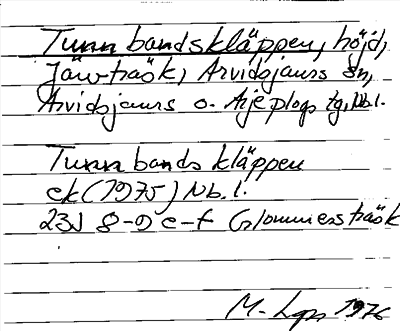 Tunnbandskläppen, höjd,
Järvträsk, Arvidsjaurs sn,
Arvidsjaurs o. Arjeplogs tg, Nb.l.
Tunnbandskläppen
ek (1975) Nb.l.
23J 8-9 e-f Glommersträsk
M. Lgn 1976